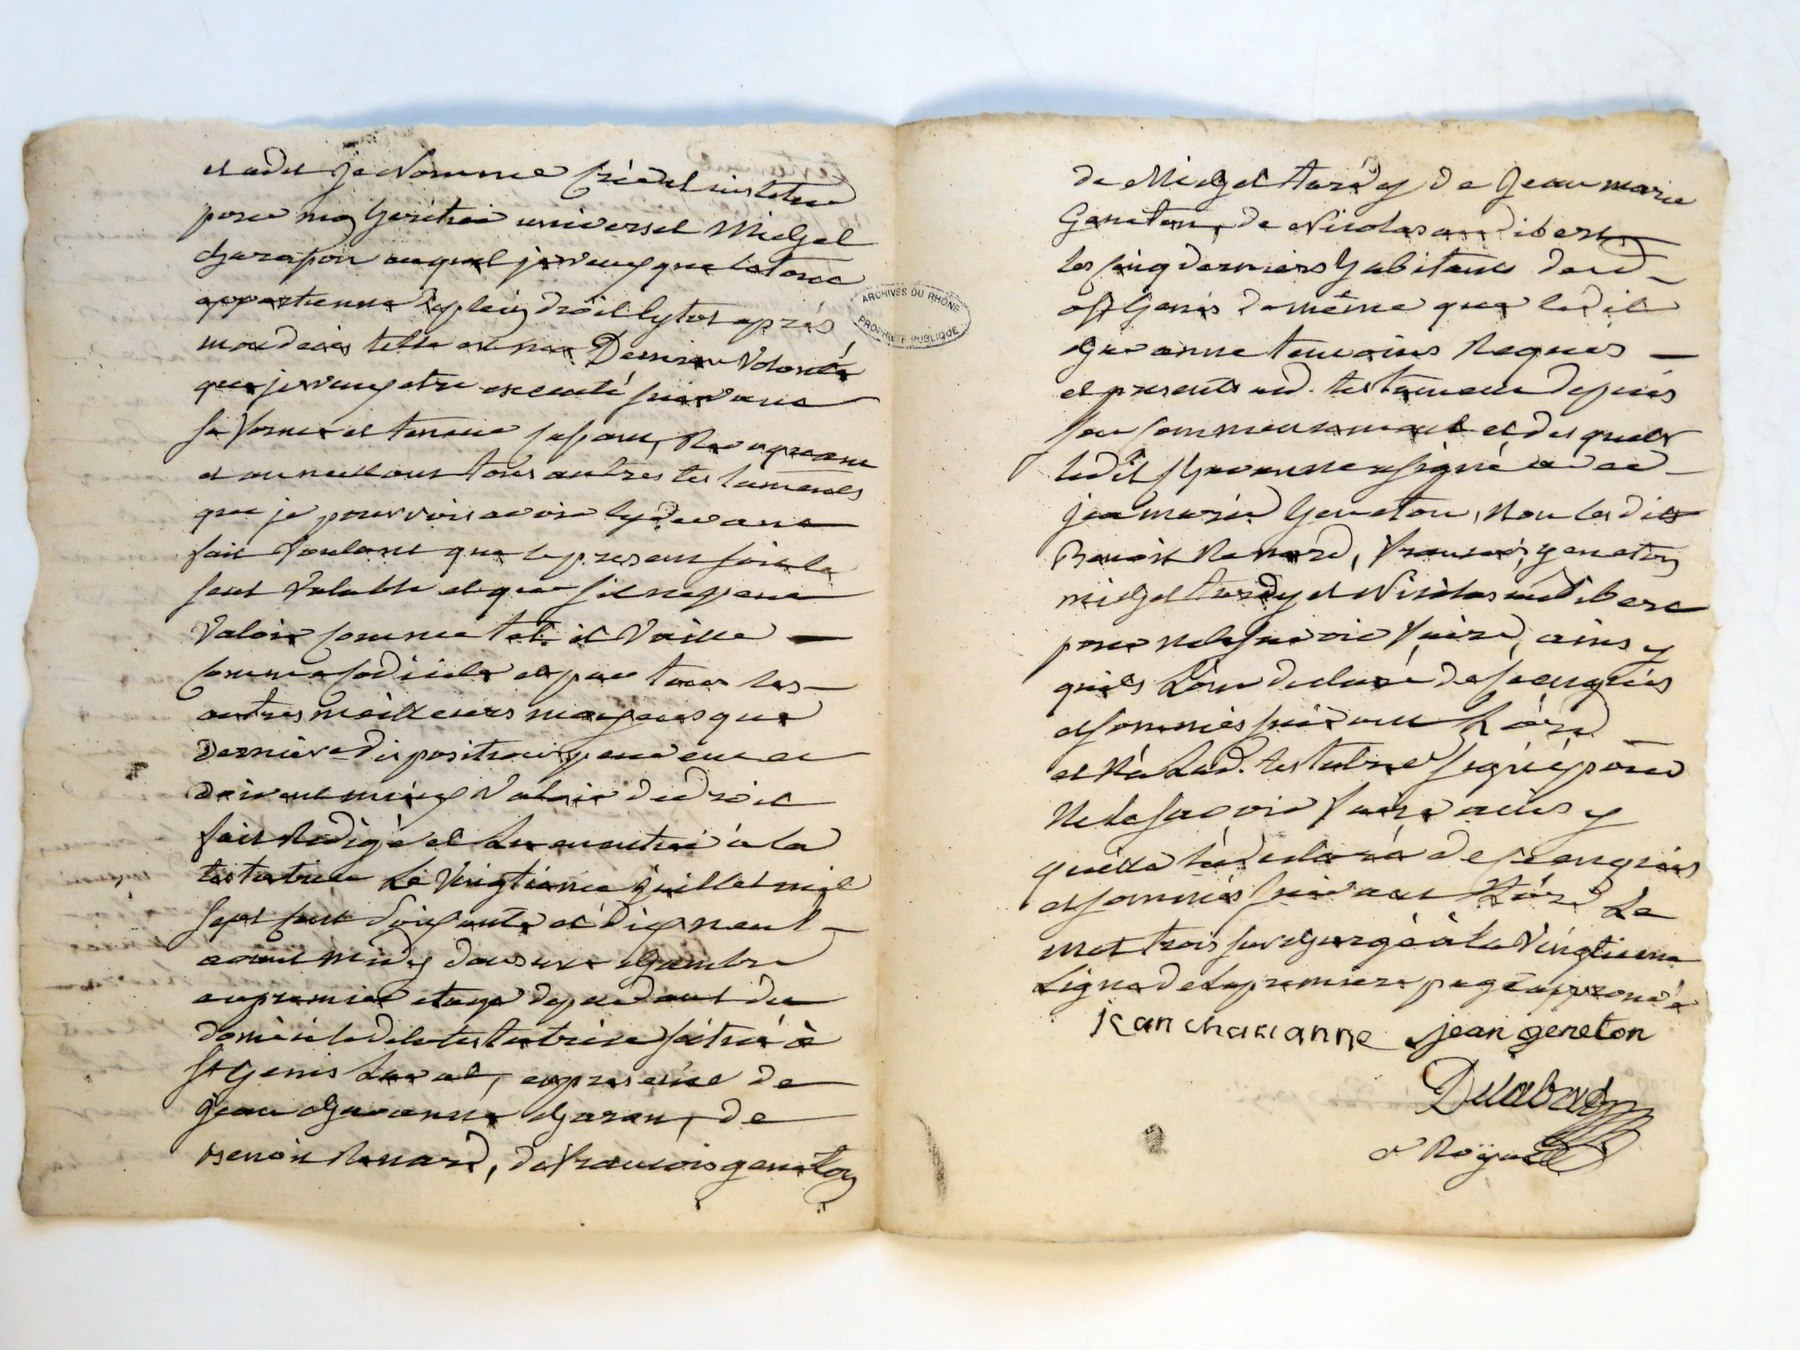 et adit je Nomme Crée et institue
pour mon heritier universel Michel
charapon auquel je veux que le tout
appartienne de plein droit sytot après
mon deces telle est ma Derniere Volonté
que je veux etre executé suivant
sa forme et teneur Revoquant
et annullant tous autres testaments
que je pourrois avoir cy devant
fait voulant que le present soit le
seul valable et que s'il ne peut
Valoir comme tel il Vaille
comme codicile et par tous les
autres meilleurs moyens que
derniere disposition peuvent et
doivent mieux Valoir de droit
fait Redigé et Lu en entier à la
testatrice Le Vingtieme juillet mil
sept cent soixante et dix neuf
avant midy dans une chambre
au premier etage dependant du
domicile de la testatrice située à
St Genis Laval, en presence de
jean Charanne de
Benoit Renard, de francois geneton
ARCHIVES DU RHÔNE
PROPRIÉTÉ PUBLIQUE
de Michel tardy de Jean marie
Geneton, de Nicolas audibert
les cinq derniers habitants dud
St Genis de même que ledit
Charanne temoins Requis
et presents aud. testament depuis
son commencement et desquels
ledit Charanne a signé avec
jean marie Geneton, Non lesdits
Benoit Renard, francois geneton
michel tardy et Nicolas audibert
pour ne le scavoir faire, ainsy
qu'ils L'ont declaré de ce enquis
et sommés suivant L'ord
et N'a Lad. testatrice signé pour
Ne le scavoir faire ainsy
qu'elle l'a declaré de ce enquise
et sommée suivant L'ord Le
mot trois surchargé à la Vingtieme
Ligne de la premiere page approuvé
jean charranne jean geneton
Delabord
N Royal